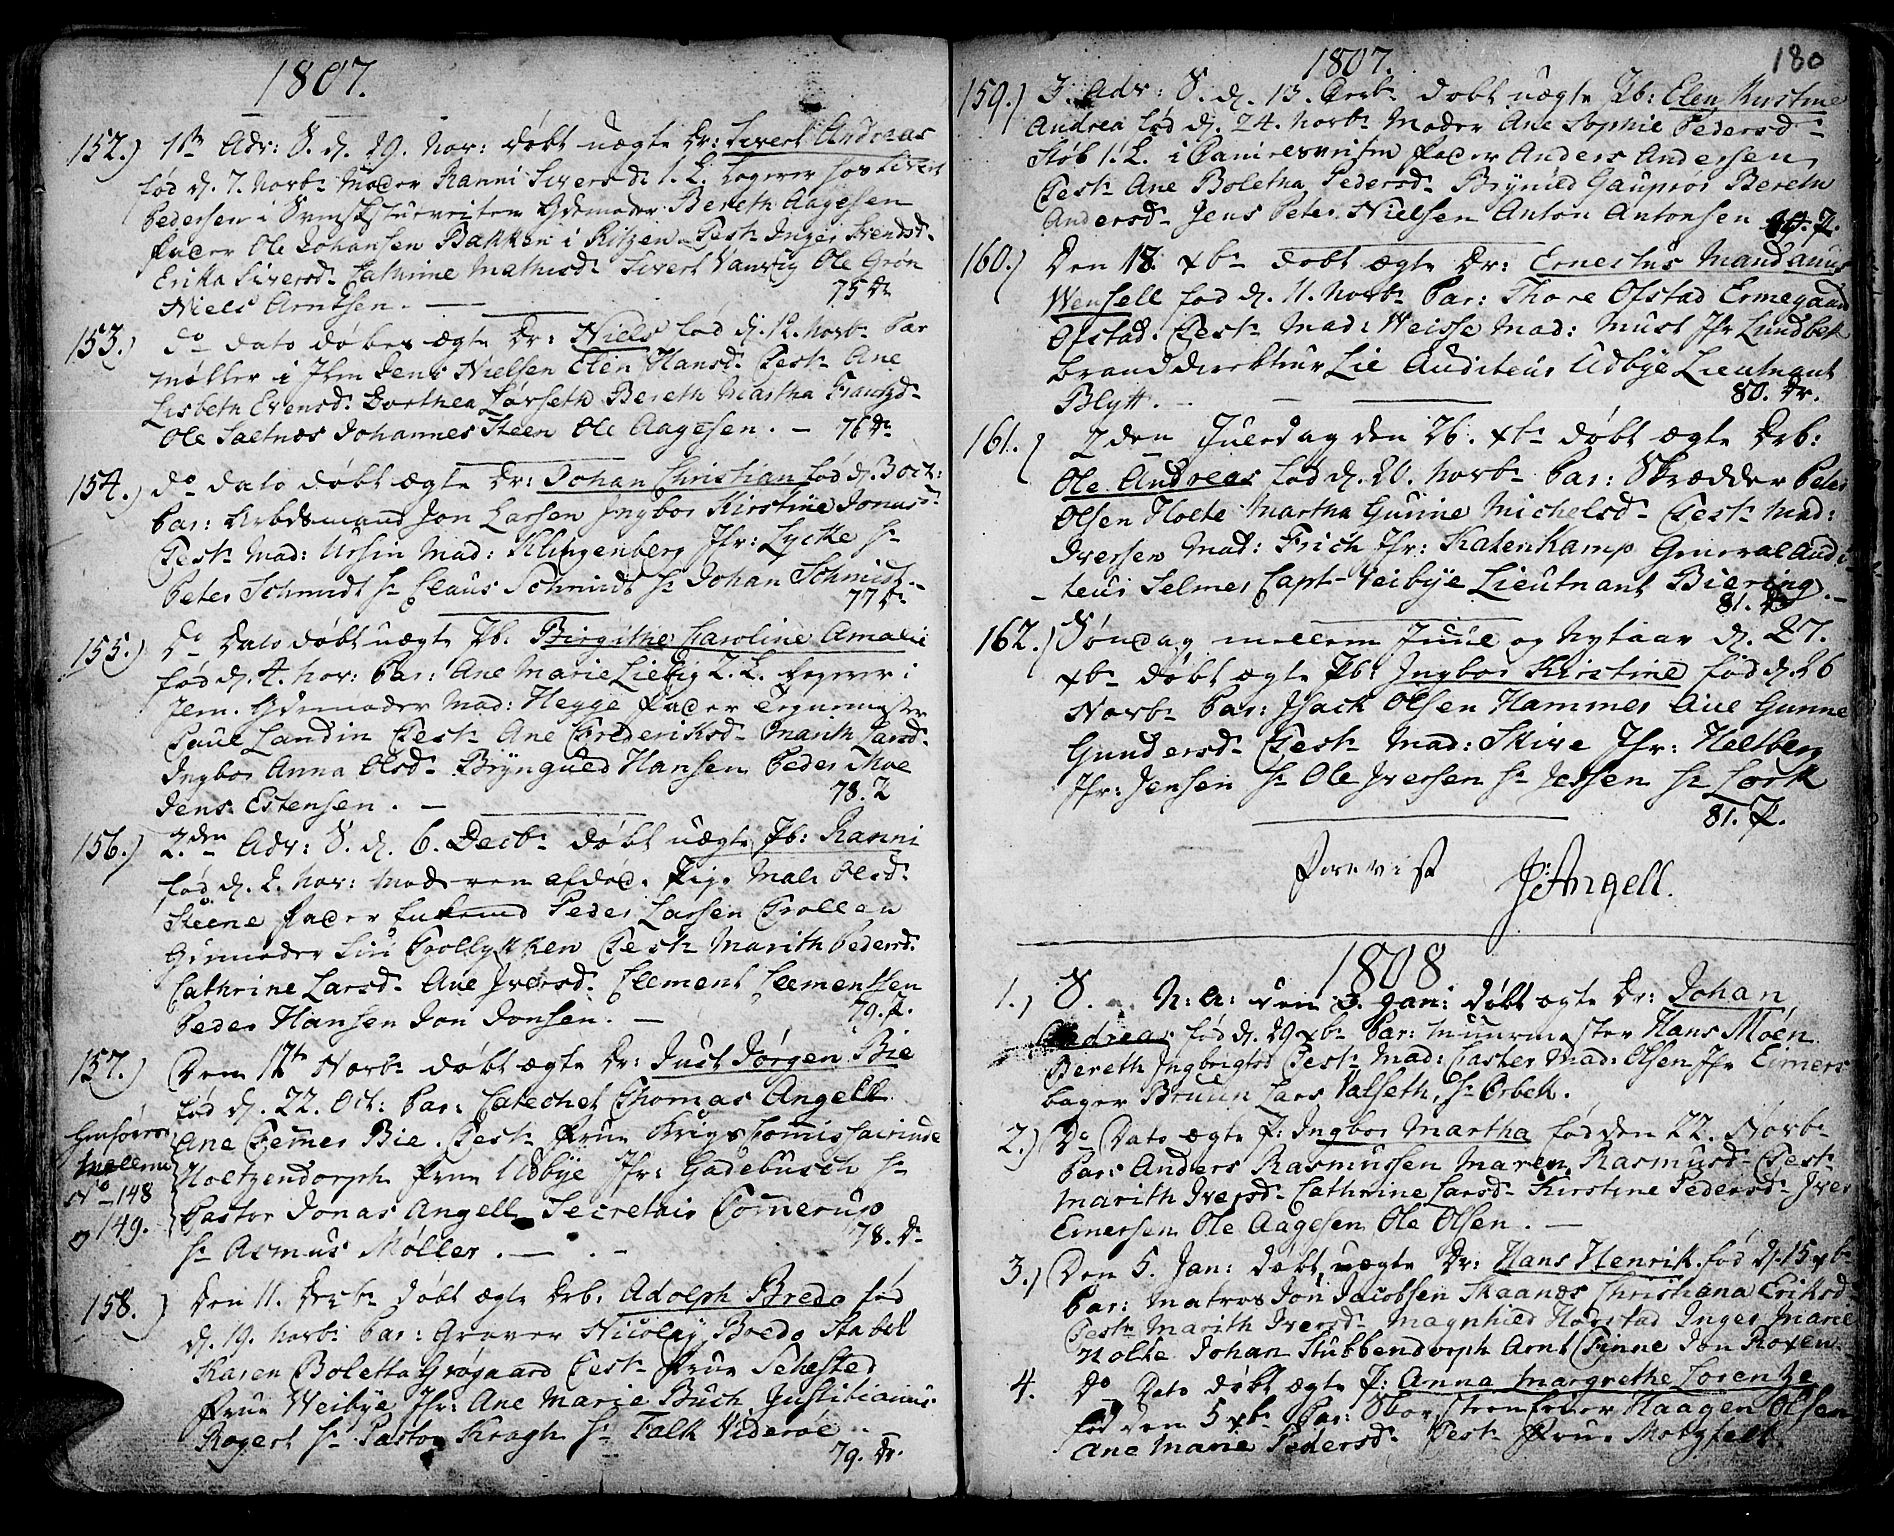 1807.
152.) 1ste Adv: S. d. 29. Nov: døbt uægte Dr: Sivert Andreas
fød d. 7. Novbr Moder Ranni Siversd. 1. L. logerer hos Sivert
Pedersen i Gdmoder Bereth Aagesen
Fader Ole Johansen Bakken i Test: Inger Svendsd.
Erika Siversd. Cathrine Mathisd. Sivert Vanvig Ole Grøn
Niels Arntsen. — 75 Dr
153.) do dato døbes ægte Dr: Niels fød d. 12. Novbr Par
Møller i Jlen Jens Nielsen Elen Hansd. Test: Ane
Lisbeth Evensd. Dorthea Lørseth Bereth Martha Frantzd.
Ole Saltnæs Johannes Steen Ole Aagesen. — 76 Dr
154.) do dato døbt ægte Dr: Johan Christian fød d. 3 Oct:
Par: Arbdsmand Jon Larsen Jngbor Kirstine Jonasd.
Test: Mad: Ursin Mad: Klingenberg Jfr: Lycke Hr
Peter Schmidt Hr Claus Schmidt Hr Johan Schmidt. —
77 Dr
155.) Do Dato døbt uægte Pb: Birgithe Caroline Amalie
fød d. 4. Nov: Par: Ane Marie Liebig 2. L. logerer i
Jlen. Gdmoder Mad: Hegge Fader Tegnemester
Paul Landin Test: Ane Frederiksd. Marith Larsd.
Ingbor Anna Olsd. Bryngild Hansen Peder Moe
Jens Estensen. — 78. P
156.) 2den Adv: S. d. 6. Decbr døbt uægte Pb: Ranni
fød d. 2. Nov: Moderen afdød. Pige Mali Olsd.
Steene Fader Enkemd Peder Larsen Trollen
Gdmoder Siri Trollykken Test: Marith Pedersd.
Cathrine Larsd. Ane Iversd. Clement Clementsen
Peder Hansen Jon Jonsen. — 79. P.
157.) Den 12te Novbr døbt ægte Dr: Just Jørgen Bie
fød d. 22. Oct: Par: Catechet Thomas Angell
Ane Temmer Bie. Test: Frue Krigs Commissairinde
Holtzendorph Frue Udbye Jfr: Gadebusch Hr
Pastor Jonas Angell Secretair Tommerup
Hr Asmus Møller. — . — 78. Dr
Henhøren
Mellem
No 148
og 149.
158.) Den 11. Decbr døbt ægte Drb: Adolph Bredo fød
d. 19. Novbr Par: Graver Nicolay Bredo Stabel
Karen Boletta Grøgaard Test: Frue Sehested
Frue Weibye Jfr: Ane Marie Buch Justitiarius
Rogert Hr Pastor Kragh Hr Falk Viderøe
79. Dr.
180
1807.
159.) 3. Adv: S. d. 13. Decbr døbt uægte Pb: Elen Kirstine
Andrea fød d. 24. Novbr Moder Ane Sophie Pedersd.
Støb 1. L. i Fader Anders Andersen
Test: Ane Boletha Pedersd. Brynild Gauprøs Bereth
Andersd. Jens Peter Nielsen Anton Antonsen 80. P.
160.) Den 18. xbr døbt ægte Dr: Ernestus Mandanus
Wensell fød d. 11. Novbr Par: Thore Ofstad Ermegaard
Ofstad. Test: Mad: Weisse Mad: Must Jfr Lundbek
Branddirekteur Lie Auditeur Udbye Lieutnant
Blytt. — 80. Dr.
161.) 2den Juledag den 26. xbr døbt ægte Drb:
Ole Andreas fød d. 20. Novbr Par: Skrædder Peter
Olsen Holte Martha Gunne Michelsd. Test: Mad:
Iversen Mad: Frich Jfr: Katenkamp General Audi-
teur Selmer Capt. Veibye Lieutnant Biering. —
81. Dr
162.) Søndag mellem Juul og Nytaar d. 27.
xbr døbt ægte Pb: Jngbor Kirstine fød d. 26
Novbr Par: Jsack Olsen Hammer Ane Gunne
Gundersd. Test: Mad: Skive Jfr: Heltberg
Jfr: Jensen Hr Ole Iversen Hr Jessen Hr Lork
81. P.
Forevist J: Angell.
1808
1.) S. N: A: den 3. Jan: døbt ægte Dr: Johan
Andreas fød d. 29 xbr Par: Muurmester Hans Moen
Bereth Ingbrigtsd Test: Mad: Caster Mad: Olsen Jfr Eimers
bager Bruun Lars Valseth, Hr Orbek.
2.) Do Dato ægte P: Ingbor Martha fød den 22. Novbr
Par: Anders Rasmussen Maren Rasmusd. Test:
Marith Iversd. Cathrine Larsd. Kirstine Pedersd. Iver
Einersen Ole Aagesen Ole Olsen. —
3.) Den 5. Jan: døbt uægte Dr: Hans Henrik fød d. 15 xbr
Par: Matros Jon Jacobsen Skaanæs Christiana Eriksd.
Test: Marith Iversd. Magnhild Hodstad Inger Marie
Holte Johan Stubbendorph Arnt Finne Jon Roxen.
4. Do Dato døbt ægte P: Anna Margrethe Lorentze
fød den 5 xbr Par: Skorsteenfeier Haagen Olsen
Ane Marie Pedersd. Test: Frue Motzfelt